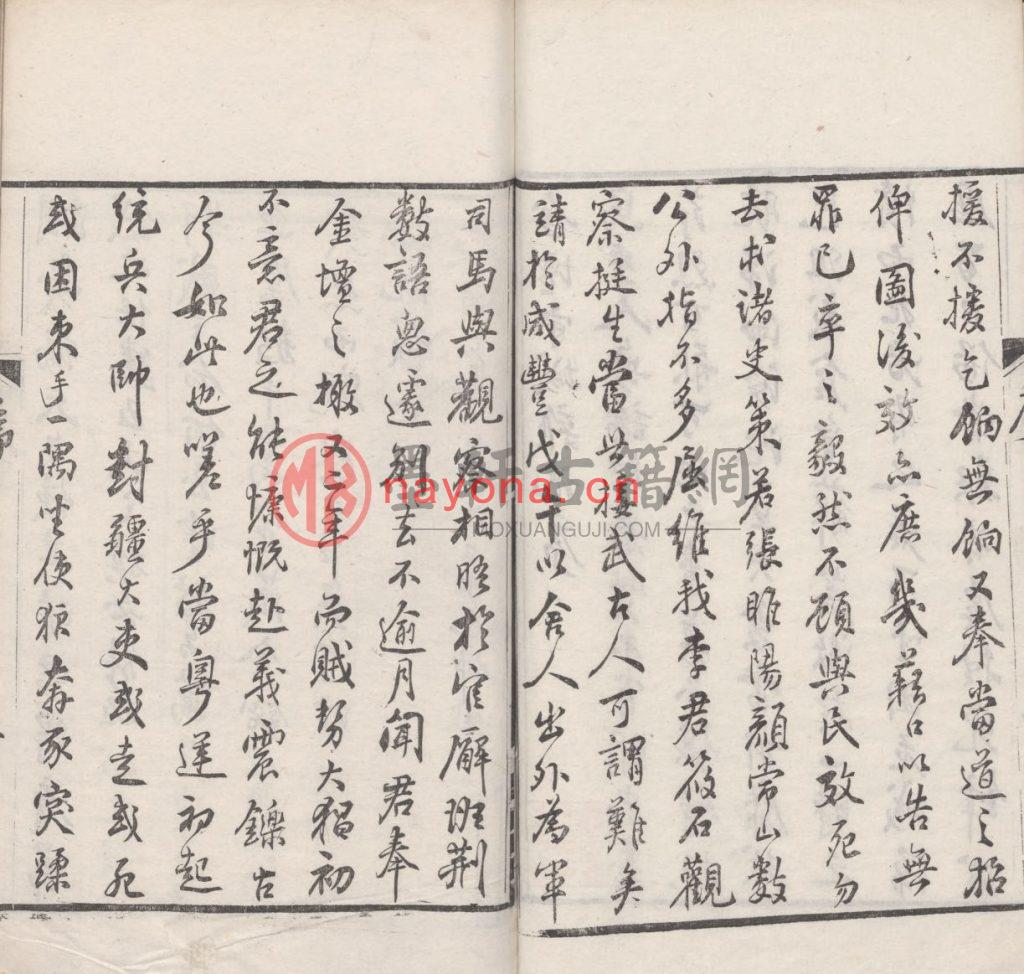 援不援乞餉無餉又奉當道之招
俾圖後效亦庶幾藉口以告無
罪已卒之毅然不顧與民效死勿
去求諸史策若張睢陽顏常山數
公外指不多屈維我李君筱石觀
察挺生當世接武古人可謂難矣
請於咸豐戊午以舍人出外為軍
司馬與觀察相晤於官廨班荆
數語悤遽别去不逾月聞君奉
金壇之檄又二年而賊勢大猖初
不意君之能慷慨赴義震鑠古
今如此也嗟乎當粵逆初起
統兵大帥對疆大吏或走或死
或困束手一隅坐使狼奔豕突蹂
序
nayona.cn
墨軒古籍網
MOXUANGUJI.COM